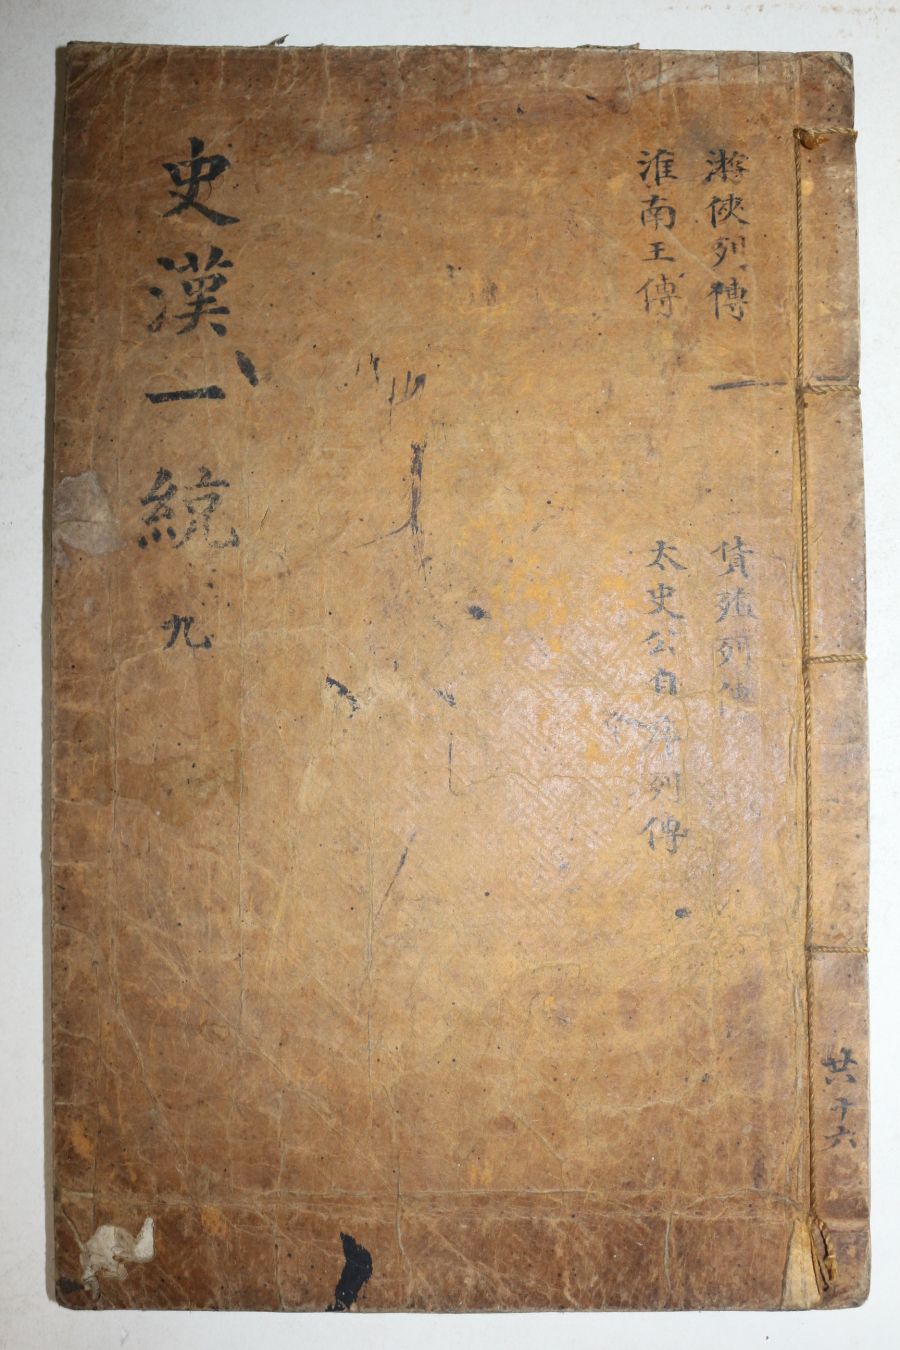 游俠列傳
貨殖列傳
淮南王傳
太史公自序列傳
史漢一統 九
共十六